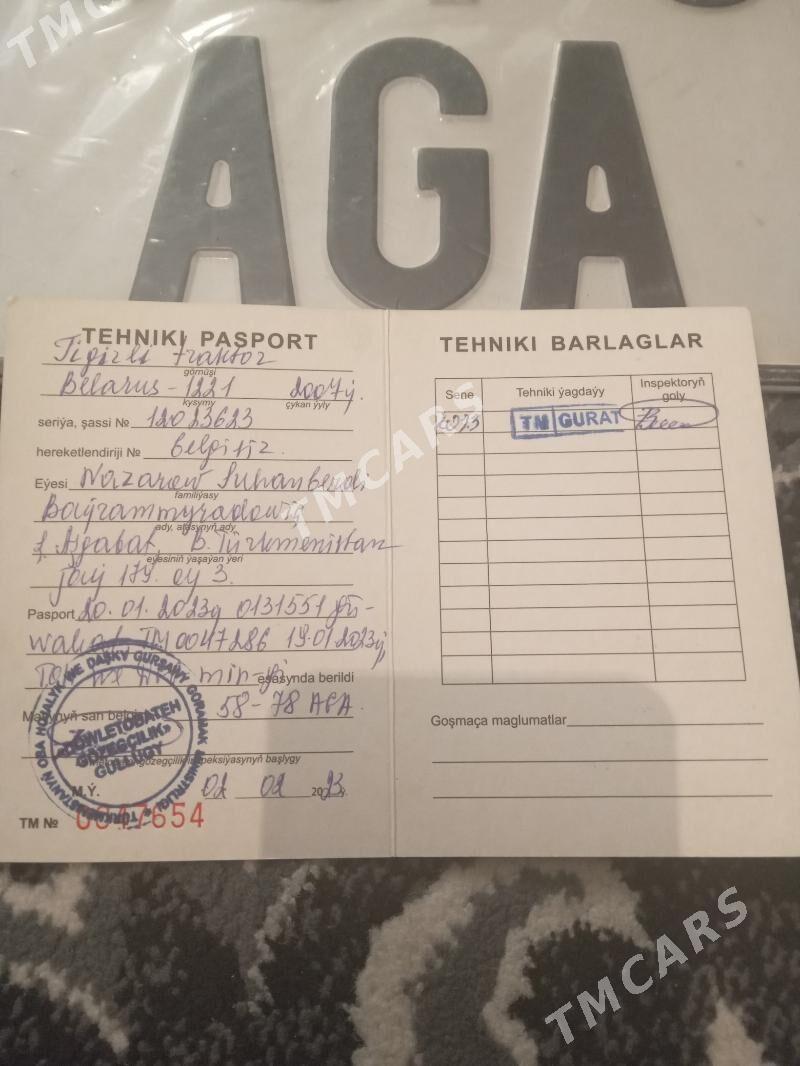 TMCARS
AGA
TEHNIKI PASPORT
Tigirli traktor
görnüşi
Belarus-1221 2007ý.
kysymy çykan ýyly
seriýa, şassi № 12023623
hereketlendiriji № belgisiz.
Eýesi Nazarow
familiýasy
Baýrammyradowiç
ady, atasynyň ady
ş. Aşgabat, B. Türkmenistan
eýesiniň ýaşaýan ýeri
jaýy 179. öý 3.
Pasport 20.01.2023ý 0131551
TM0047286 19.01.2023ý
esasynda berildi
58-78 AGA.
M.Ý. 02 02 2023ý.
TM № 0047654
«DÖWLETOBATEH
GÖZEGÇILIK»
GULLUGY
TEHNIKI BARLAGLAR
Sene Tehniki ýagdaýy Inspektoryň goly
2023 TM GURAT
Goşmaça maglumatlar
TMCARS
TMCARS